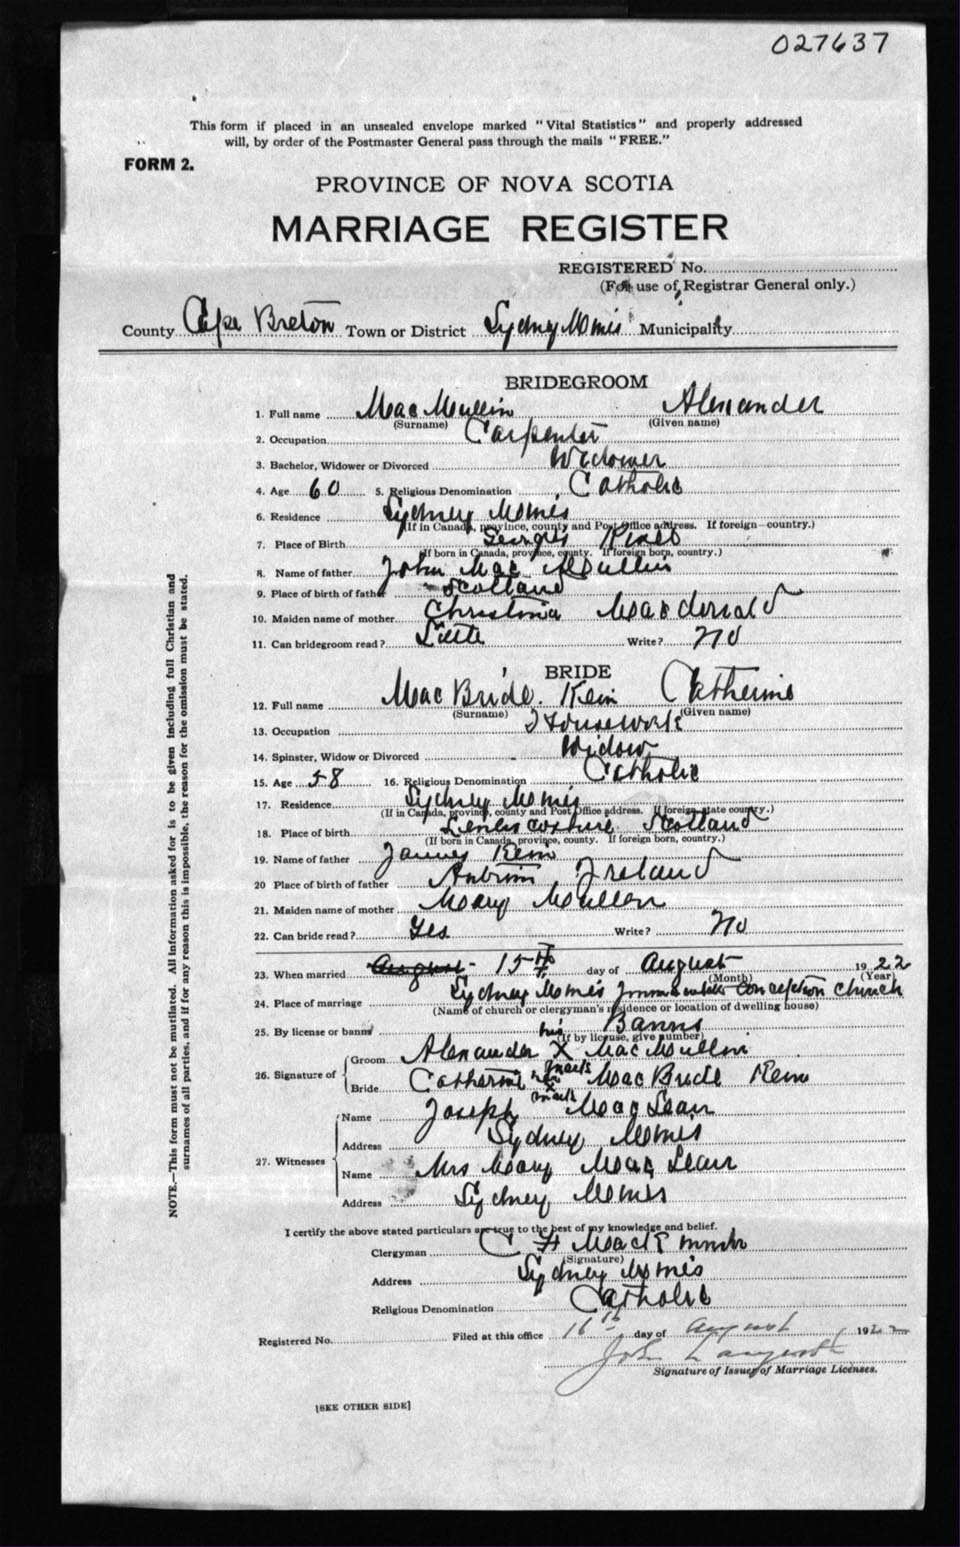 027637
This form if placed in an unsealed envelope marked "Vital Statistics" and properly addressed
will, by order of the Postmaster General pass through the mails "FREE."
FORM 2.
PROVINCE OF NOVA SCOTIA
MARRIAGE REGISTER
REGISTERED No.
(For use of Registrar General only.)
County Cape Breton Town or District Sydney Mines Municipality
BRIDEGROOM
1. Full name MacMullin Alexander
(Surname) (Given name)
2. Occupation Carpenter
3. Bachelor, Widower or Divorced Widower
4. Age 60 5. Religious Denomination Catholic
6. Residence Sydney Mines
(If in Canada, province, county and Post Office address. If foreign—country.)
7. Place of Birth Georges River
(If born in Canada, province, county. If foreign born, country.)
8. Name of father John MacMullin
9. Place of birth of father Scotland
10. Maiden name of mother Christina Macdonald
11. Can bridegroom read? Little Write? No
BRIDE
12. Full name MacBride Catherine
(Surname) (Given name)
13. Occupation Housework
14. Spinster, Widow or Divorced Widow
15. Age 58 16. Religious Denomination Catholic
17. Residence Sydney Mines
(If in Canada, province, county and Post Office address. If foreign state country.)
18. Place of birth Scotland
(If born in Canada, province, county. If foreign born, country.)
19. Name of father James
20 Place of birth of father Antrim Ireland
21. Maiden name of mother Mary Mullen
22. Can bride read? Yes Write? No
23. When married August 15th day of August 1922
(Month) (Year)
24. Place of marriage Sydney Mines Immaculate Conception Church
(Name of church or clergyman's residence or location of dwelling house)
25. By license or banns Banns
(If by license, give number)
26. Signature of
Groom Alexander his X mark MacMullin
Bride Catherine her X mark MacBride
27. Witnesses
Name Joseph MacLean
Address Sydney Mines
Name Mrs Mary MacLean
Address Sydney Mines
I certify the above stated particulars are true to the best of my knowledge and belief.
Clergyman C F MacKinnon
(Signature)
Address Sydney Mines
Religious Denomination Catholic
Registered No. Filed at this office 16th day of August 1922
John Langworth
Signature of Issuer of Marriage Licenses.
[SEE OTHER SIDE]
NOTE.—This form must not be mutilated. All information asked for is to be given including full Christian and
surnames of all parties, and if for any reason this is impossible, the reason for the omission must be stated.